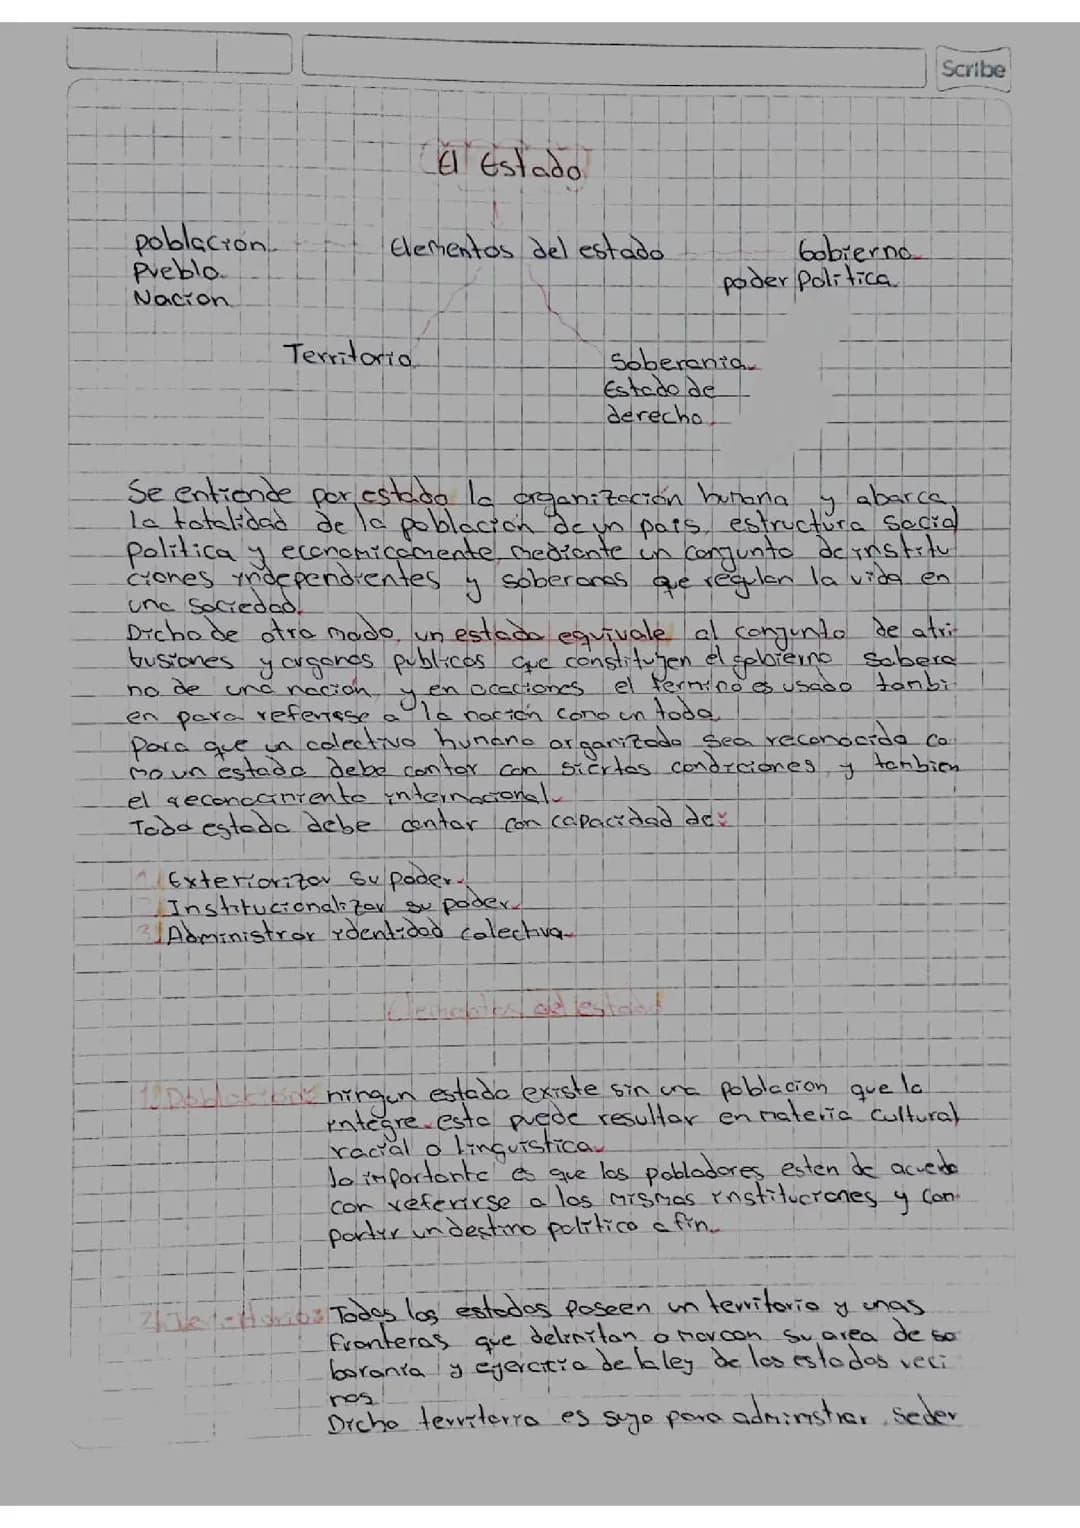 Scribe
El Estado
población
Pueblo
Nación
Elementos del estado
Gobierno
poder Politica
Territorio
Soberania
Estado de
derecho
Se entiende por estado la organización humana y abarca
la totalidad de la población de un pais, estructura social
politica y economicamente, mediante un conjunto de institu
ciones independientes y soberanas que regulan la vida en
una sociedad.
Dicho de otro modo, un estado equivale al conjunto de atri-
busiones y organos publicos que constituyen el gobierno sobera
no de una nación, y en ocaciones el termino es usado tambi
en para referisse a la nación como un todo
para que un colectivo humano organizado sea reconocido co
mo un estado debe contar con siertas condiciones, y tambien
el reconocimiento internacional.
Todo estado debe contar con capacidad de:
1 Exteriorizar su poder.
Institucionalizar su poder.
3 Administrar identidad colectiva.
Elementos del estado
1. Poblacion: ningun estado existe sin una poblacion que la
integre. esta puede resultar en materia cultural
racial o linguistica.
lo importante es que los pobladores esten de acuerdo
con referirse a las mismas instituciones y com-
partir un destino politico a fin.
2. Territorio: Todos los estados poseen un territorio y unas
Fronteras que delimitan o marcan su area de so
borania y ejercitio de la ley de los estados veci
nos
Dicho territorio es suyo para administrar. seder